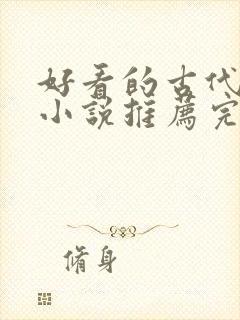 好看的古代
小说推荐完
脩身